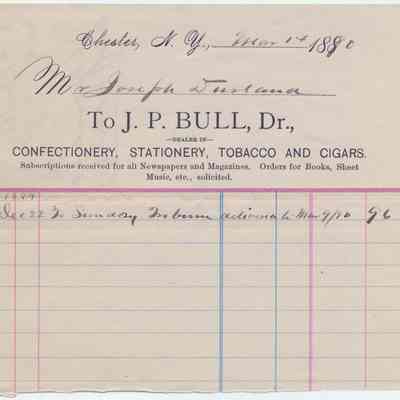 Chester, N. Y., Mar 14 1890
Mr Joseph Durland
To J. P. BULL, Dr.,
—DEALER IN—
CONFECTIONERY, STATIONERY, TOBACCO AND CIGARS.
Subscriptions received for all Newspapers and Magazines. Orders for Books, Sheet
Music, etc., solicited.
1889
Dec 22 To Sunday Tribune delivered to Mar 9/90 96